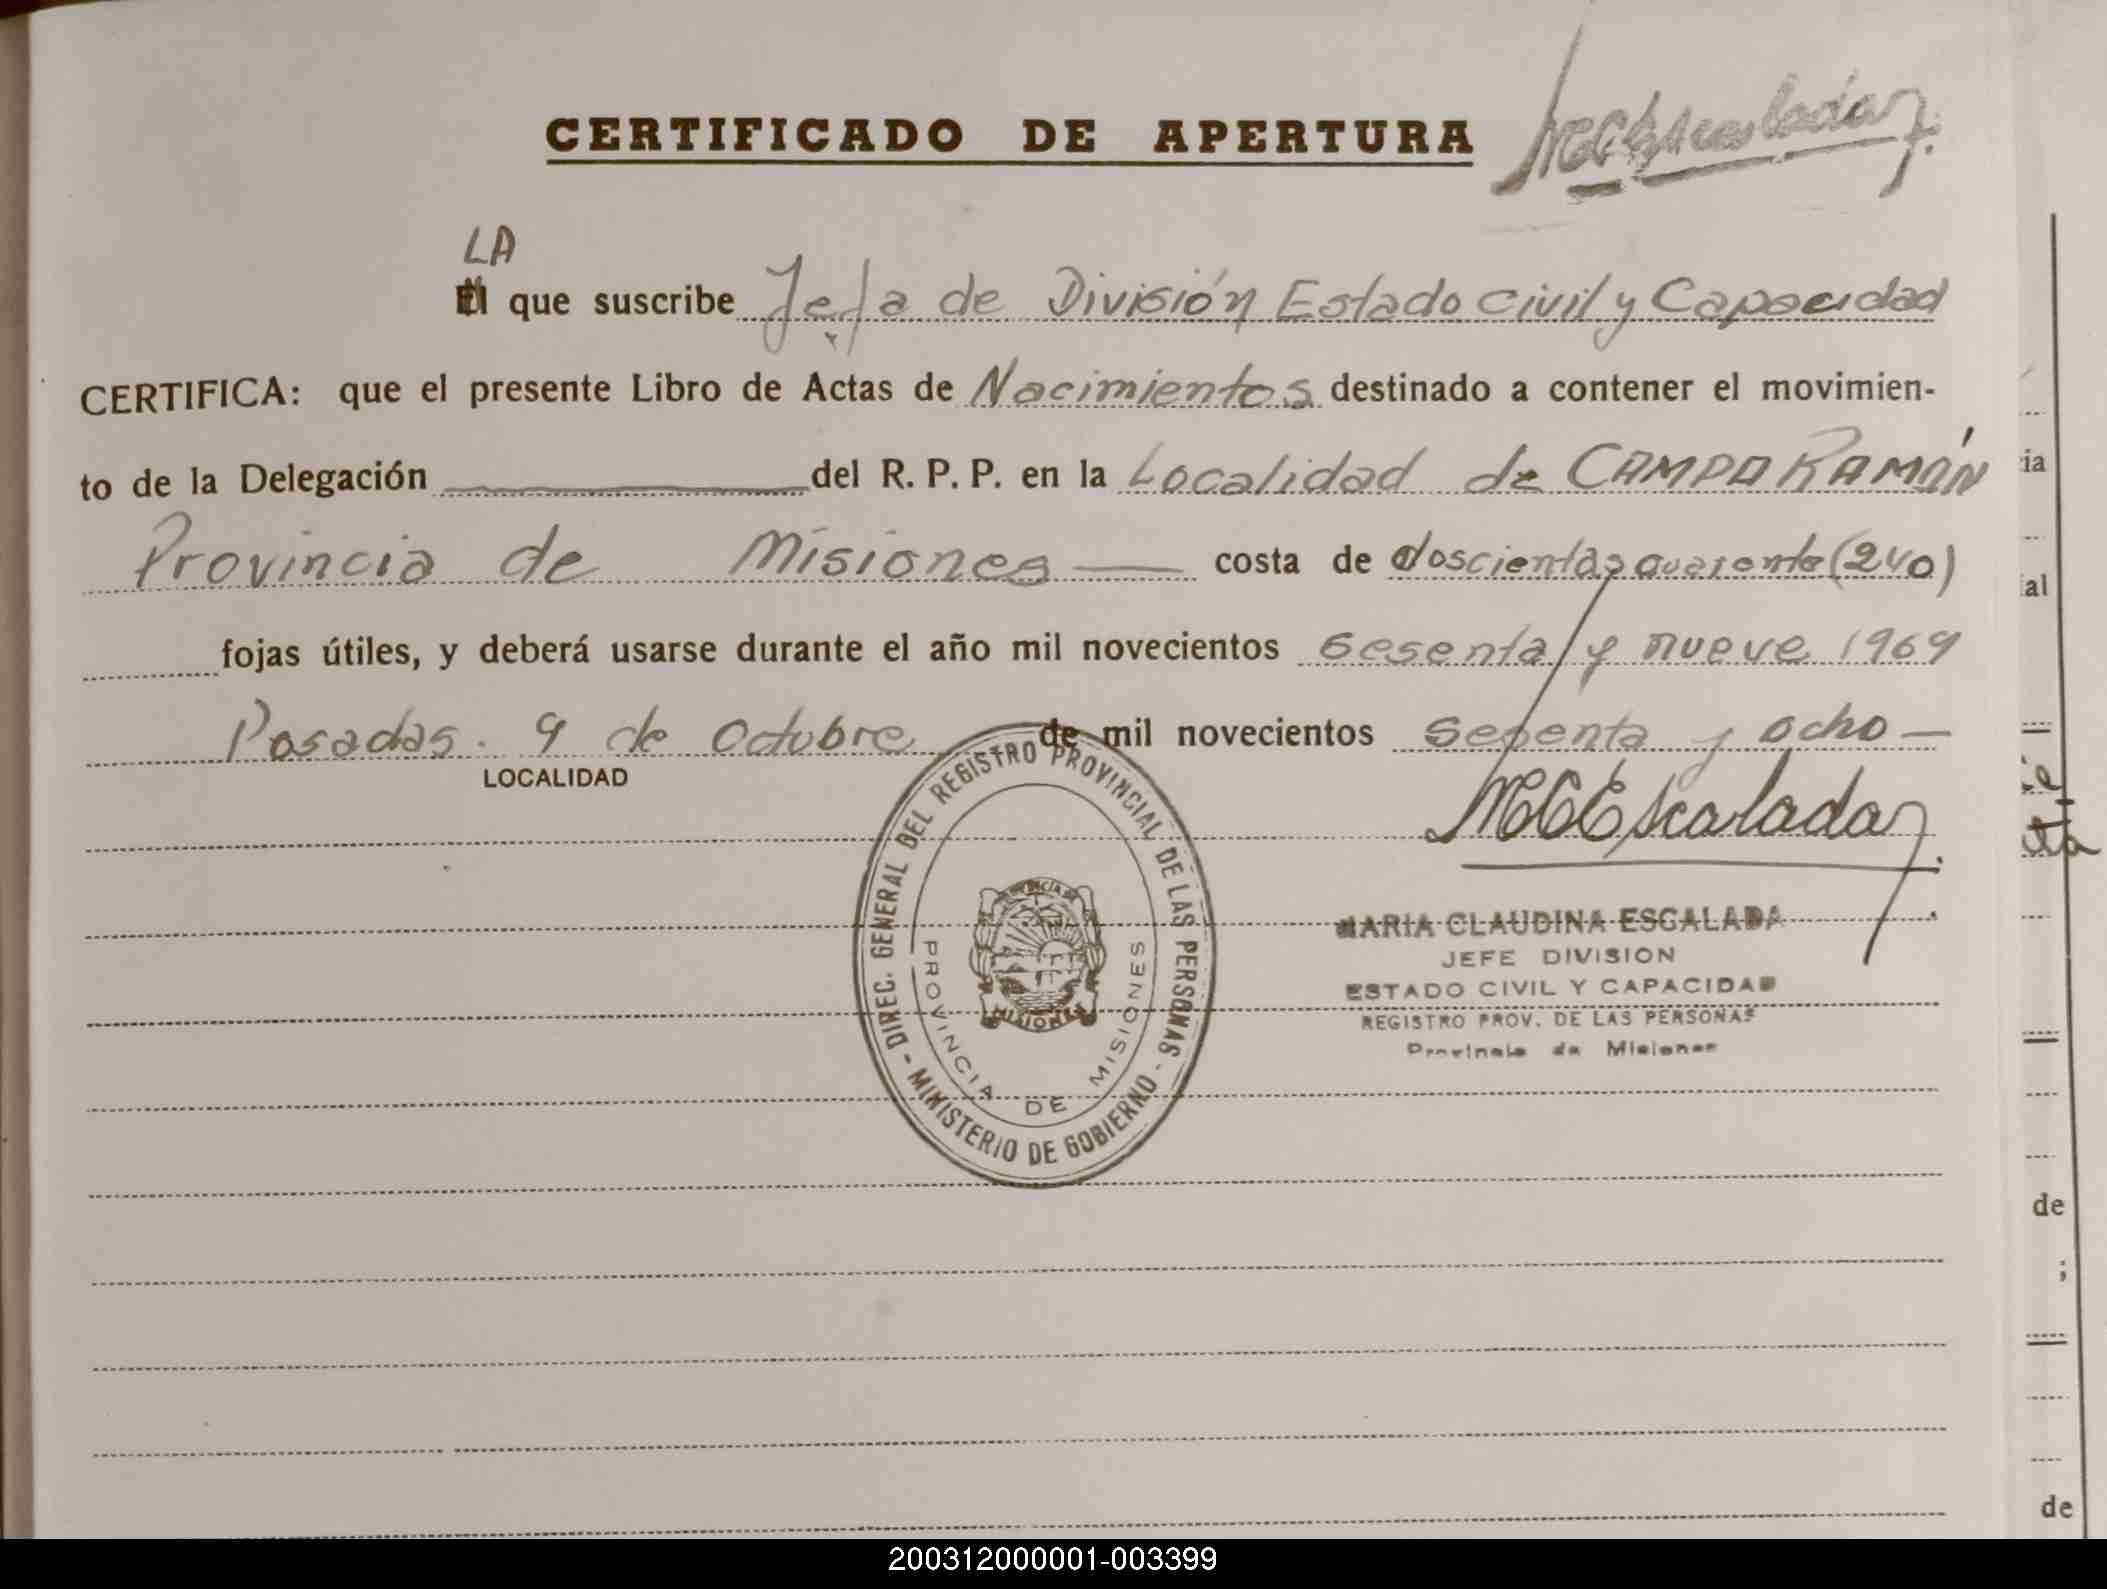 CERTIFICADO DE APERTURA
MCEscalada
LA
El que suscribe Jefa de División Estado Civil y Capacidad
CERTIFICA: que el presente Libro de Actas de Nacimientos destinado a contener el movimien-
to de la Delegación del R. P. P. en la Localidad de CAMPO RAMÓN
Provincia de Misiones costa de doscientas cuarenta (240)
fojas útiles, y deberá usarse durante el año mil novecientos sesenta y nueve 1969
Posadas. 9 de octubre de mil novecientos sesenta y ocho
LOCALIDAD
MCEscalada
DIREC. GENERAL DEL REGISTRO PROVINCIAL DE LAS PERSONAS - MINISTERIO DE GOBIERNO -
PROVINCIA DE MISIONES
PROVINCIA
MISIONES
MARIA CLAUDINA ESCALADA
JEFE DIVISION
ESTADO CIVIL Y CAPACIDAD
REGISTRO PROV. DE LAS PERSONAS
Provincia de Misiones
ia
al
de
;
de
200312000001-003399